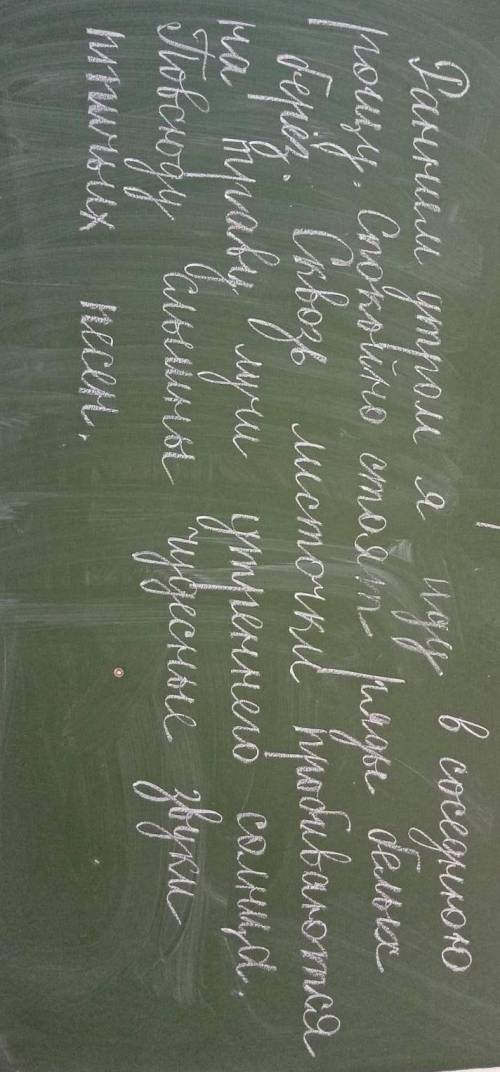 Ранним утром я иду в соседнюю
рощу. Спокойно стоят ряды белых
берёз. Сквозь листочки пробиваются
на траву лучи утреннего солнца.
Повсюду слышны чудесные звуки
птичьих песен.